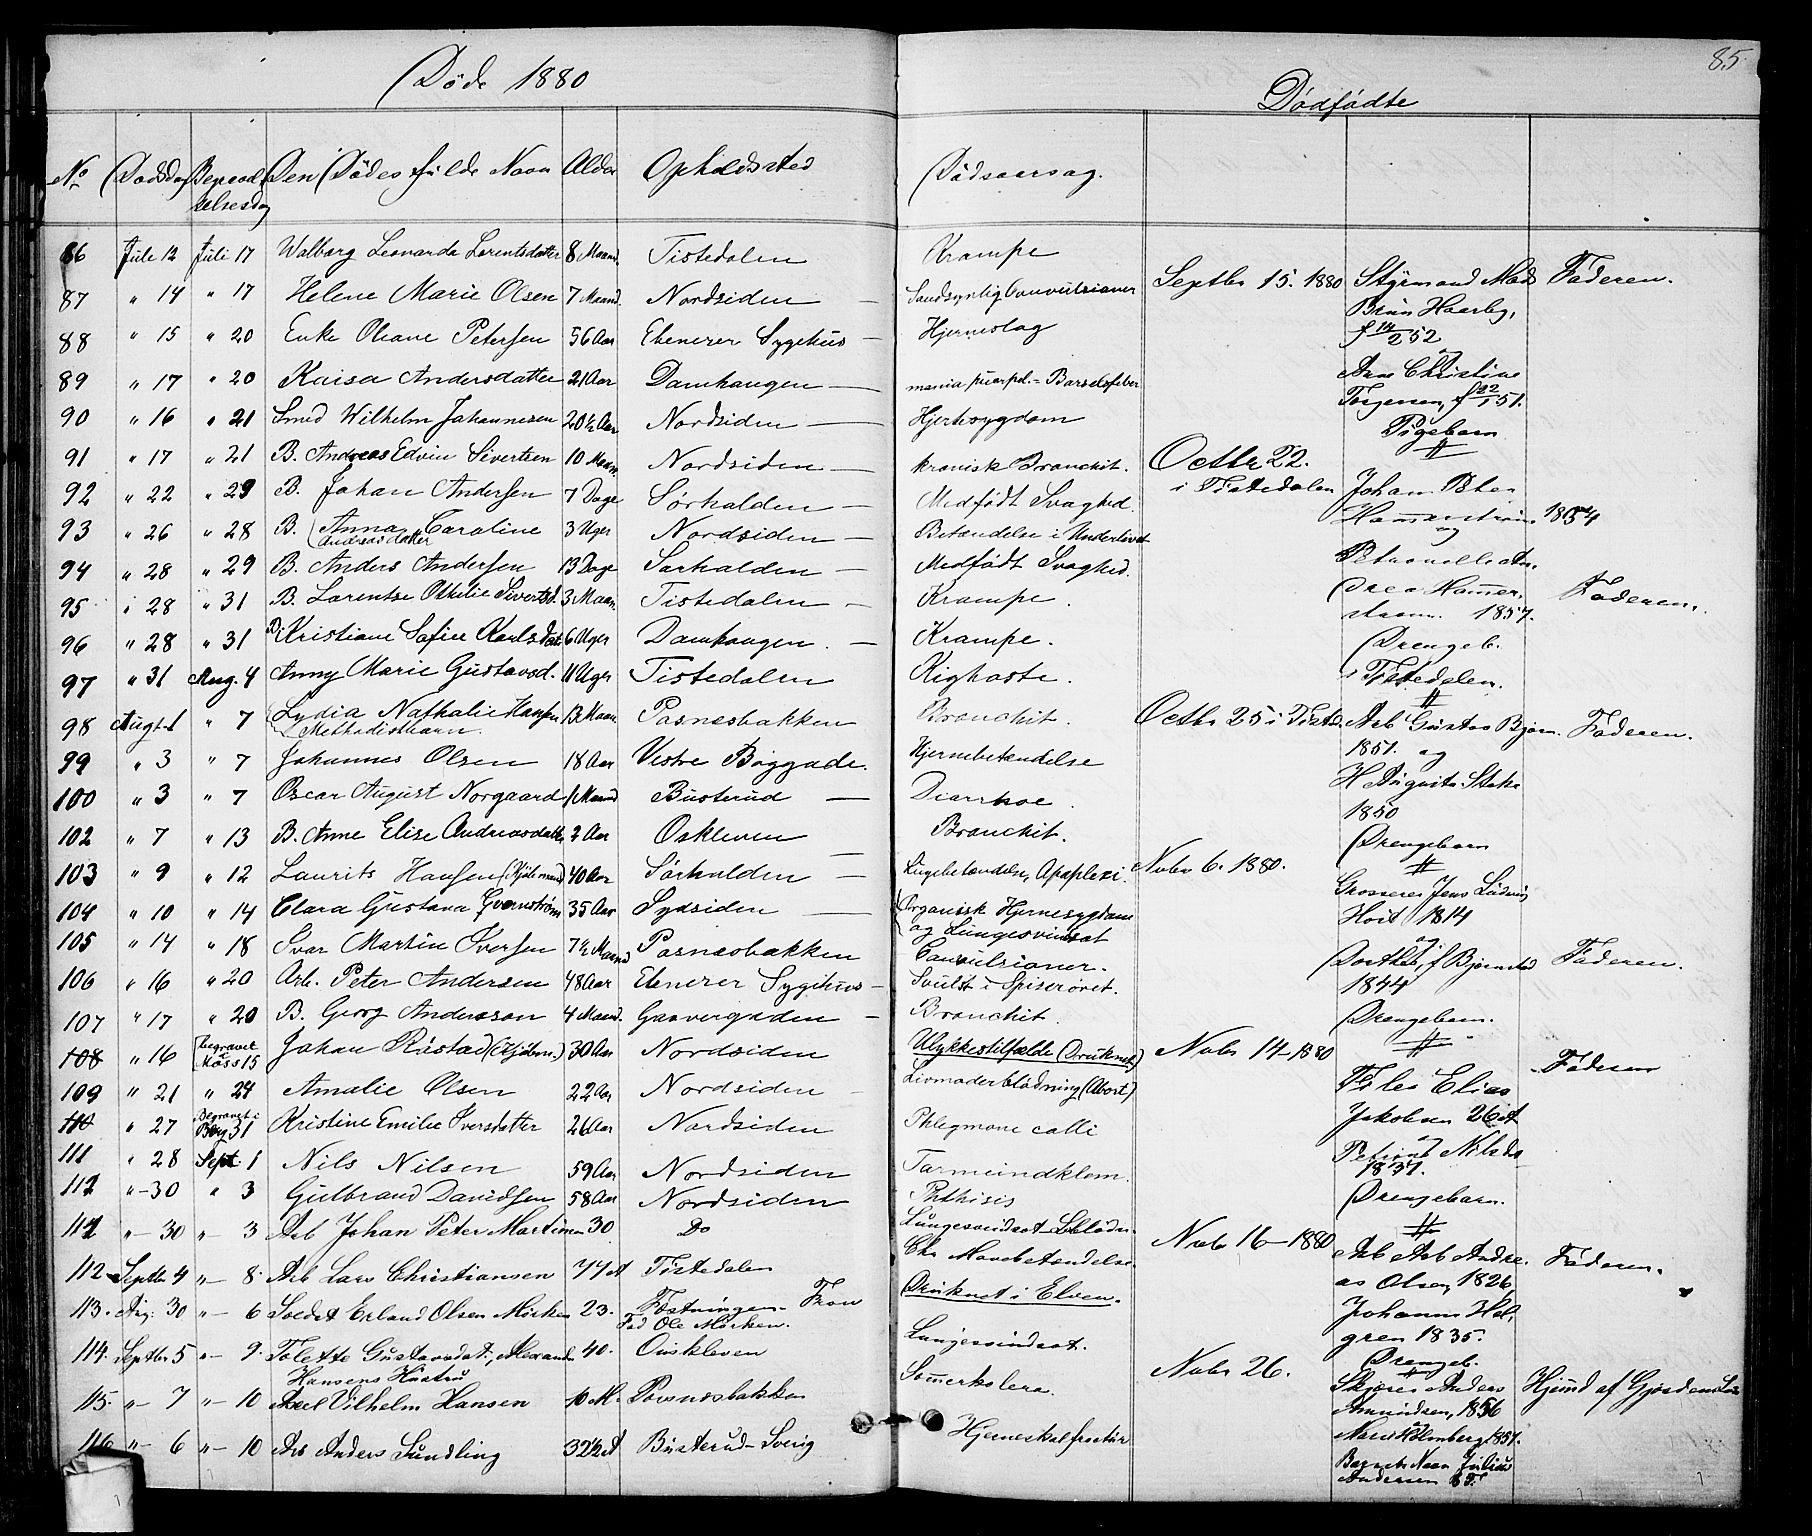 85.
Døde 1880
Dødfødte
No Dødsdag Begravelsesdag Den Dødes fulde Navn Alder Opholdssted Dødsaarsag.
86 Juli 12 Juli 17 Walborg Leonarda Lorentsdatter 8 Maand. Tistedalen Krampe
87 " 14 " 17 Helene Marie Olsen 7 Maand. Nordsiden — Sandsynlig Convulsioner
88 " 15 " 20 Enke Oleane Petersen 56 Aar Ebenezer Sygehus — Hjerneslag
89 " 17 " 20 Kaisa Andersdatter 21 Aar Damhaugen — mania puerpel. - Barselsfeber
90 " 16 " 21 Smed Wilhelm Johannesen 20½ Aar Nordsiden — Hjertesygdom
91 " 17 " 21 B. Andreas Edvin Sivertsen 10 Maan Nordsiden — kronisk Bronchit.
92 " 22 " 29 B. Johan Andersen 7 Dage Sørhalden — Medfødt Svaghed.
93 " 26 " 28 B. Anna Caroline Andersdatter 3 Uger Nordsiden — Betændelse i Underlivet
94 " 28 " 29 B. Anders Andersen 13 Dage Sørhalden — Medfødt Svaghed.
95 " 28 " 31 B. Lorentse Othilie Sivertsd. 3 Maan. Tistedalen — Krampe.
96 " 28 " 31 B. Kristiane Sofie Karlsdat 6 Uger Damhaugen. — Krampe.
97 " 31 Aug. 4 Anny Marie Gustavsd. 11 Uger Tistedalen Kighoste.
98 Augst 1 " 7 Lydia Nathalie Hansen Methodistbarn. 13 Maan Pasnesbakken Bronchit.
99 " 3 " 7 Johannes Olsen 18 Aar Vestre Boggade. Hjernebetændelse
100 " 3 " 7 Oscar August Norgaard 1 Maand Busterud — Diarrhoe.
102 " 7 " 13 B. Anne Elise Andreasdatt 2 Aar Oskleven — Bronchit.
103 " 9 " 12 Laurits Hansen (Sjømand) 40 Aar Sørhalden — Lungebetændelse, Apoplexi.
104 " 10 " 14 Clara Gustava Qvernstrøm 35 Aar Sydsiden — Organisk Hjernesygdom og Lungesvindsot
105 " 14 " 18 Ivar Martin Iversen 7½ Maand Pasnesbakken Convulsioner.
106 " 16 " 20 Arb. Peter Andersen 48 Aar Ebenezer Sygehus — Svulst i Spiserøret.
107 " 17 " 20 B. Georg Andersson 4 Maand. Garvergaden — Bronchit.
108 " 16 begravet Moss 15 Johan Rustad 30 Aar Nordsiden Ulykkestilfælde (Druknet)
109 " 21 " 24 Amalie Olsen 22 Aar Nordsiden Livmoderblødning (Abort)
110 " 27 Begravet i Berg 31 Kristine Emilie Iversdatter 26 Aar Nordsiden Phlegmone colli
111 " 28 Sept 1 Nils Nilsen 59 Aar Nordsiden Tarmeindklem.
112 " - 30 " 3 Gulbrand Davidsen 58 Aar Nordsiden Phthisis
111 " - 30 " - 3 Arb Johan Peter Martinsen 30 Do Lungesvindsot
112 Septbr 4 " - 8. Arb Lars Christiansen 77 A Tistedalen Chr Mavebetændelse.
113. Aug. 30 " - 6 Soldat Erland Olsen Morken 23. Fæstningen - Fron Fad Ole Morken. Druknet i Elven.
114. Septbr 5 " - 9. Tolette Gustavsdat., Alexander Hansens Hustru 40. Ouskleven Lungesvindsot.
115. " - 7 " - 10 Axel Vilhelm Hansen 10 M. Povsnesbakken Sommerkolera.
116 " - 6 " - 10 Arb Anders Sundling 32½ A Busterud - Sverig Hjerneskalfractur
Septbr 15. 1880 Styrmand Mads Faderen.
Brun Haarby,
f 14/2 52
og
Ane Christine
Torgersen, f 22/1 51.
Pigebarn
Octbr 22.
i Tistedalen Johan Peter
Hammerstrøm 1854
og
Petronelle An.
drea Hammer, Faderen.
strøm. 1857.
Drengeb.
i Tistedalen.
Octbr 25 i Tisted. Arb Gustav Bjørn. Faderen.
1851. og
H Augusta
1850
Drengebarn
Novbr 6. 1880.
Grosserer Jens Ludvig
Hoit 1814
og
Dorthea, f Bjørnstad Faderen.
1844
Drengebarn.
Novbr 14 - 1880 Faderen
Elias
Jakobsen 26 A
og
Nilsda
1837.
Drengebarn.
Novbr 16 - 1880 Arb Andre. Faderen.
as Olsen, 1826
Johanne Hol,
gren 1835.
Drengeb.
Novbr 26. Anders Hjemd af
Amundsen, 1856
og
Holmberg, 1857.
Barnets Navn Julius
Andersen